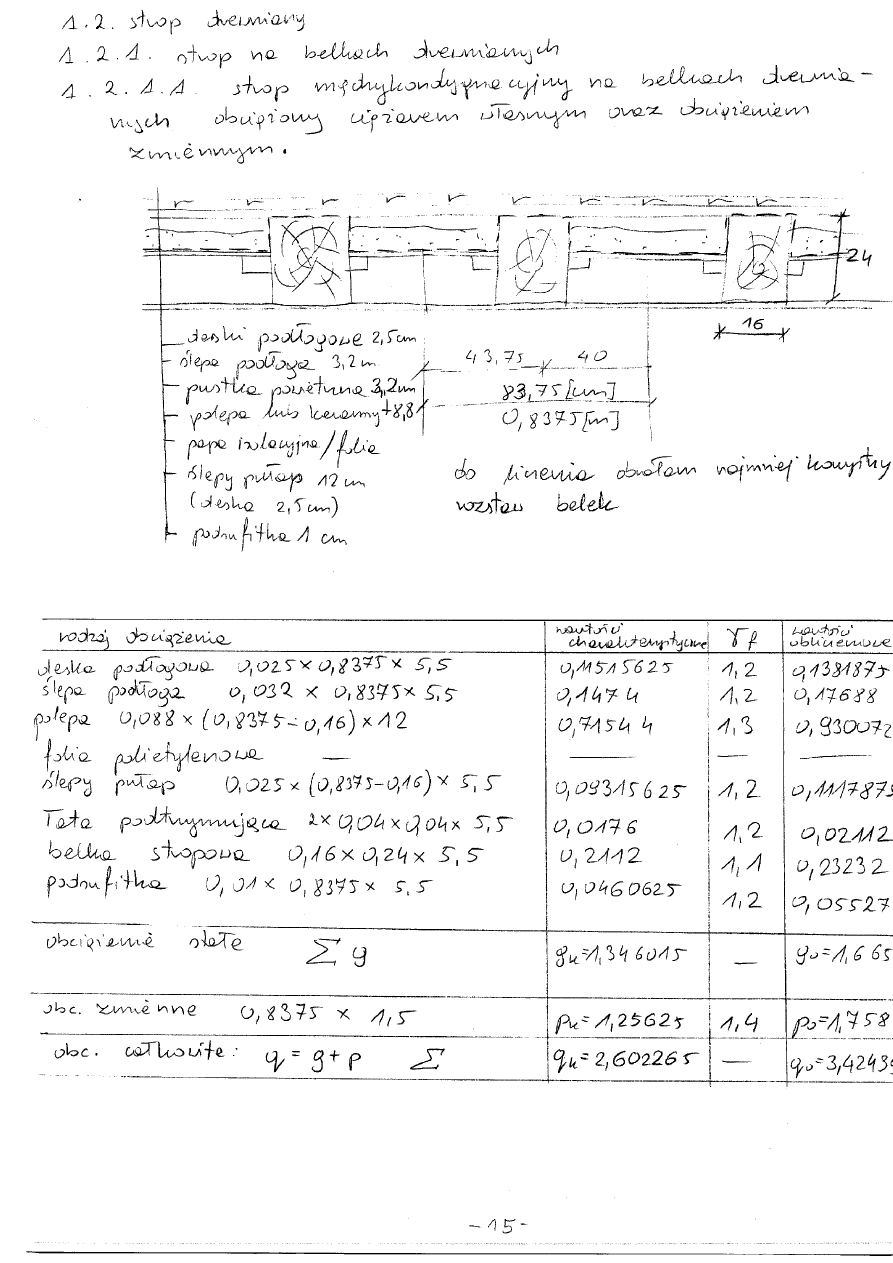 1.2. strop drewniany
1.2.1. strop na belkach drewnianych
1.2.1.1. strop międzykondygnacyjny na belkach drewnia-
nych obciążony ciężarem własnym oraz obciążeniem
zmiennym.
24
16
deski podłogowe 2,5cm
ślepa podłoga 3,2cm
43,75 40
pustka powietrzna 3,2cm
83,75 [cm]
polepa lub keramzyt 8,8
0,8375 [m]
papa izolacyjna/folia
ślepy pułap 12cm
(deska 2,5cm)
podsufitka 1 cm
do liczenia obrałam najmniej korzystny
rozstaw belek
rodzaj obciążenia wartości charakterystyczne γf wartości obliczeniowe
deska podłogowa 0,025 × 0,8375 × 5,5 0,11515625 1,2 0,1381875
ślepa podłoga 0,032 × 0,8375 × 5,5 0,1474 1,2 0,17688
polepa 0,088 × (0,8375-0,16) × 12 0,71544 1,3 0,930072
folia polietylenowa — — — —
ślepy pułap 0,025 × (0,8375-0,16) × 5,5 0,09315625 1,2 0,1117875
łata podtrzymująca 2×0,04×0,04× 5,5 0,0176 1,2 0,02112
belka stropowa 0,16×0,24× 5,5 0,2112 1,1 0,23232
podsufitka 0,01 × 0,8375 × 5,5 0,0460625 1,2 0,05527
obciążenie stałe Σ g gk=1,346015 — go=1,665
obc. zmienne 0,8375 × 1,5 pk=1,25625 1,4 po=1,758
obc. całkowite: q = g+p Σ qk=2,602265 — qo=3,42439
-15-